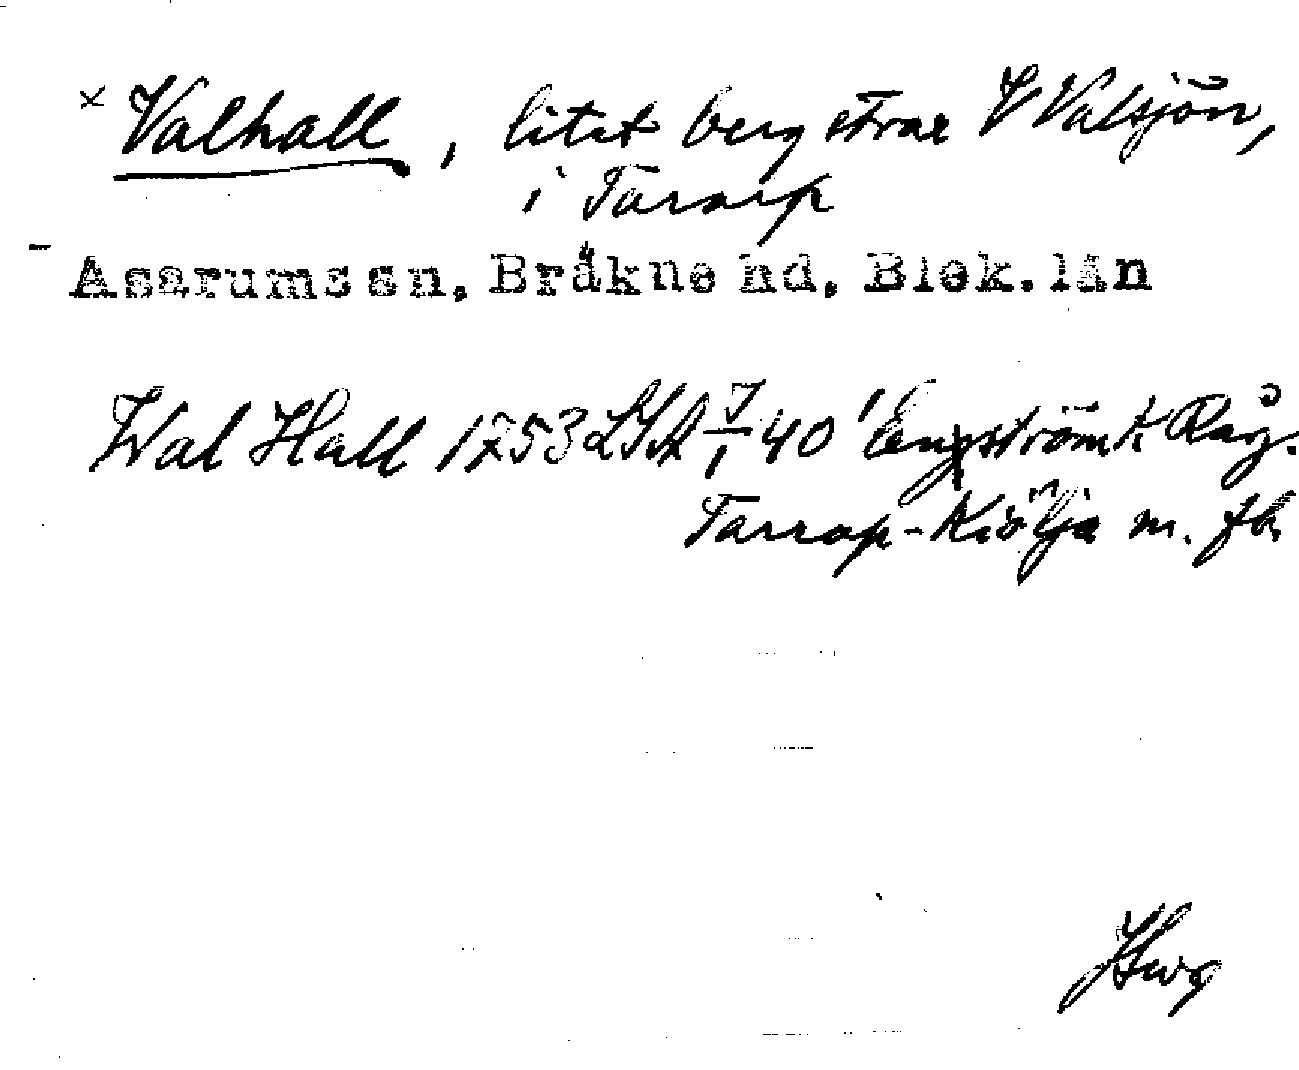 × Valhall, litet berg strax V Valsjön,
i Tararp
Asarums sn, Bråkne hd, Blek. län
Wal Hall 1753 LSA 7/1 40 Engström k Råg.
Tararp - Kiölja m. fl.